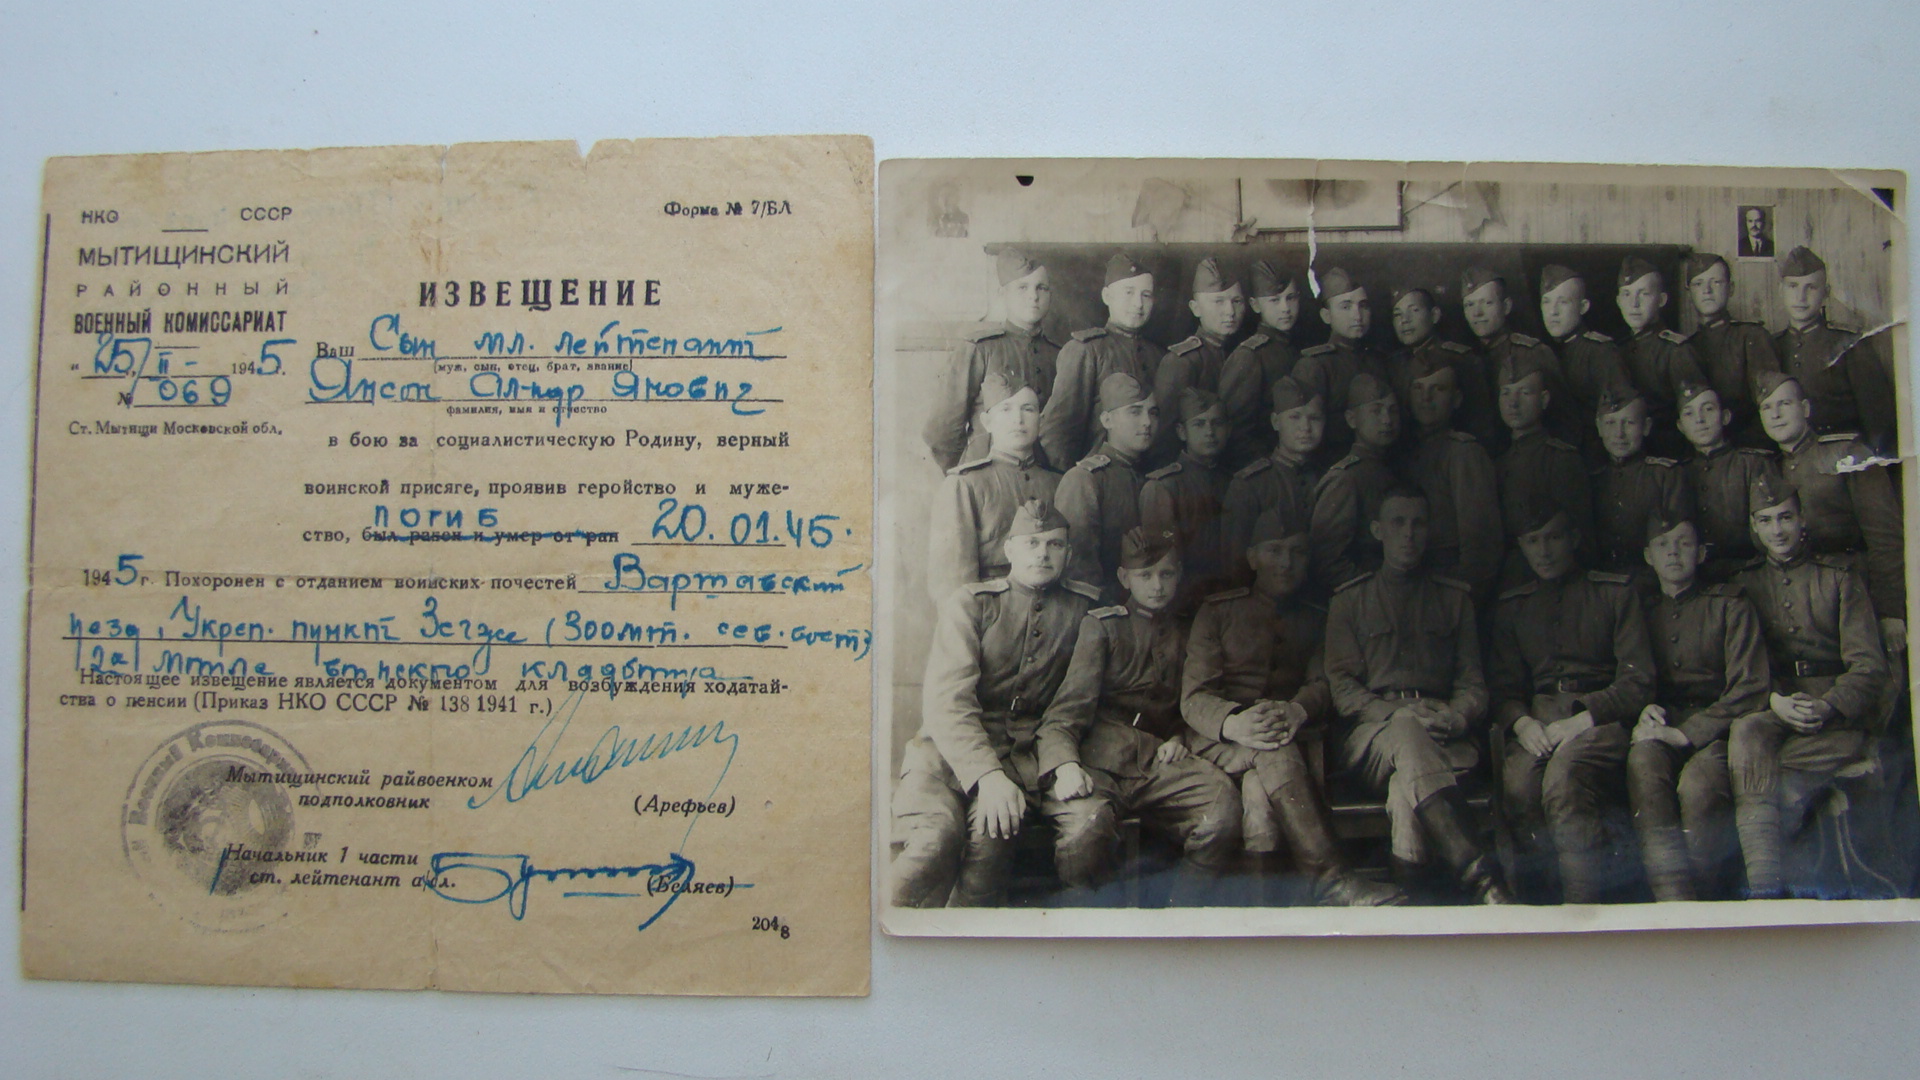 НКО СССР
МЫТИЩИНСКИЙ
РАЙОННЫЙ
ВОЕННЫЙ КОМИССАРИАТ
"25" II - 1945.
№ 069
Ст. Мытищи Московской обл.
Форма № 7/БЛ
ИЗВЕЩЕНИЕ
Ваш Сын мл. лейтенант
(муж, сын, отец, брат, звание)
Янсон Ал-ндр Янович
фамилия, имя и отчество
в бою за социалистическую Родину, верный
воинской присяге, проявив геройство и муже-
погиб
ство, был ранен и умер от ран 20.01.45.
1945 г. Похоронен с отданием воинских почестей Варшавский
Укреп. пункт Згеже (300 мт. сев. вост)
кладбища
Настоящее извещение является документом для возбуждения ходатай-
ства о пенсии (Приказ НКО СССР № 138 1941 г.)
Военный Комиссариат
Мытищинский райвоенком
подполковник (Арефьев)
Начальник 1 части
ст. лейтенант а/сл. (Беляев)
2048